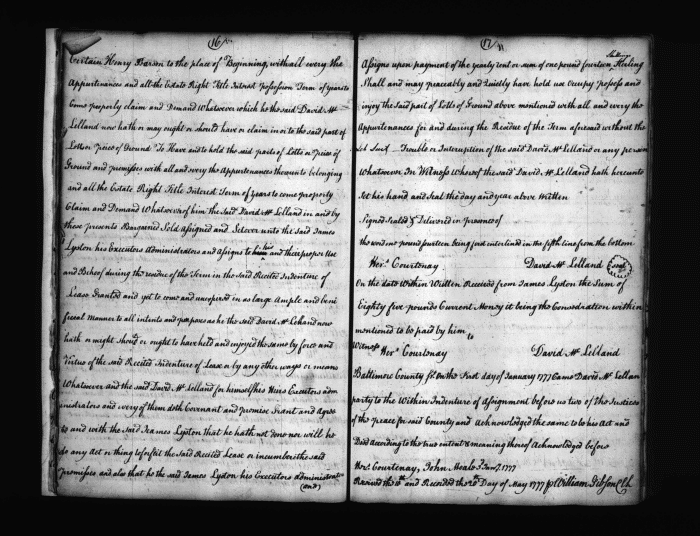 16
Certain Henry Barson to the place of Beginning, with all every the
Appurtenances and all the Estate Right Title Interest Possession Term of years to
Come property claim and Demand Whatsoever which he the said David Mc
Lelland now hath or may ought or should have or claim in or to the said part of
Lott or Piece of Ground To Have and to hold the said parts of Lotts or Pieces of
Ground and premisses with all and every the Appurtenances thereunto belonging
and all the Estate Right Title Interest Term of years to come property
Claim and Demand Whatsoever of him the Said David Mc Lelland in and by
these presents Bargained Sold Assigned and Setover unto the said James
Lydon his Executors Administrators and Assigns to his and their proper Use
and Behoof during the residue of the Term in the Said Recited Indenture of
Lease Granted and yet to come and unexpired in as large Ample and bene
ficial Manner to all intents and purposes as he the said David Mc Lelland now
hath or might should or ought to have held and enjoyed the same by force and
Virtue of the said Recited Indenture of Lease or by any other ways or means
Whatsoever and the said David Mc Lelland for himself his Heirs Executors adm
inistrators and every of them doth Covenant and promise Grant and Agree
to and with the Said James Lydon that he hath not done nor will he
do any Act or thing to forfeit the Said Recited Lease or incumber the said
Premisses and also that he the said James Lydon his Executors administrators
(and)
17
Shillings
Assigns upon payment of the yearly rent or sum of one pound fourteen Sterling
Shall and may peaceably and Quietly have hold use Occupy possess and
injoy the said part of Lotts of Ground above mentioned with all and every the
Appurtenances for and during the Residue of the Term aforesaid without the
Trouble or Interuption of the said David Mc Lelland or any person
Whatsoever In Witness Whereof the said David Mc Lelland hath hereunto
Set his hand and Seal the day and year above Written
Signed Sealed & Delivered in presence of
the word one pound fourteen being first interlined in the fifth line from the bottom
Hers. Courtenay David Mc Lelland Seal
On the date Within Written Received from James Lydon the Sum of
Eighty five pounds Current Money it being the Consideration within
mentioned to be paid by him
Witness Hers. Courtenay David Mc Lelland
Baltimore County fs. On the First day of January 1777 Came David Mc Lellan
party to the Within Indenture of Assignment before us two of the Justices
of the peace for said County and Acknowledged the same to be his Act and
Deed according to the true intent & meaning thereof Acknowledged before
Herc. Courtenay, John Moale 3 Jany. 1777
Received the 10th and Recorded the 20 Day of May 1777 p William Gibson Clk